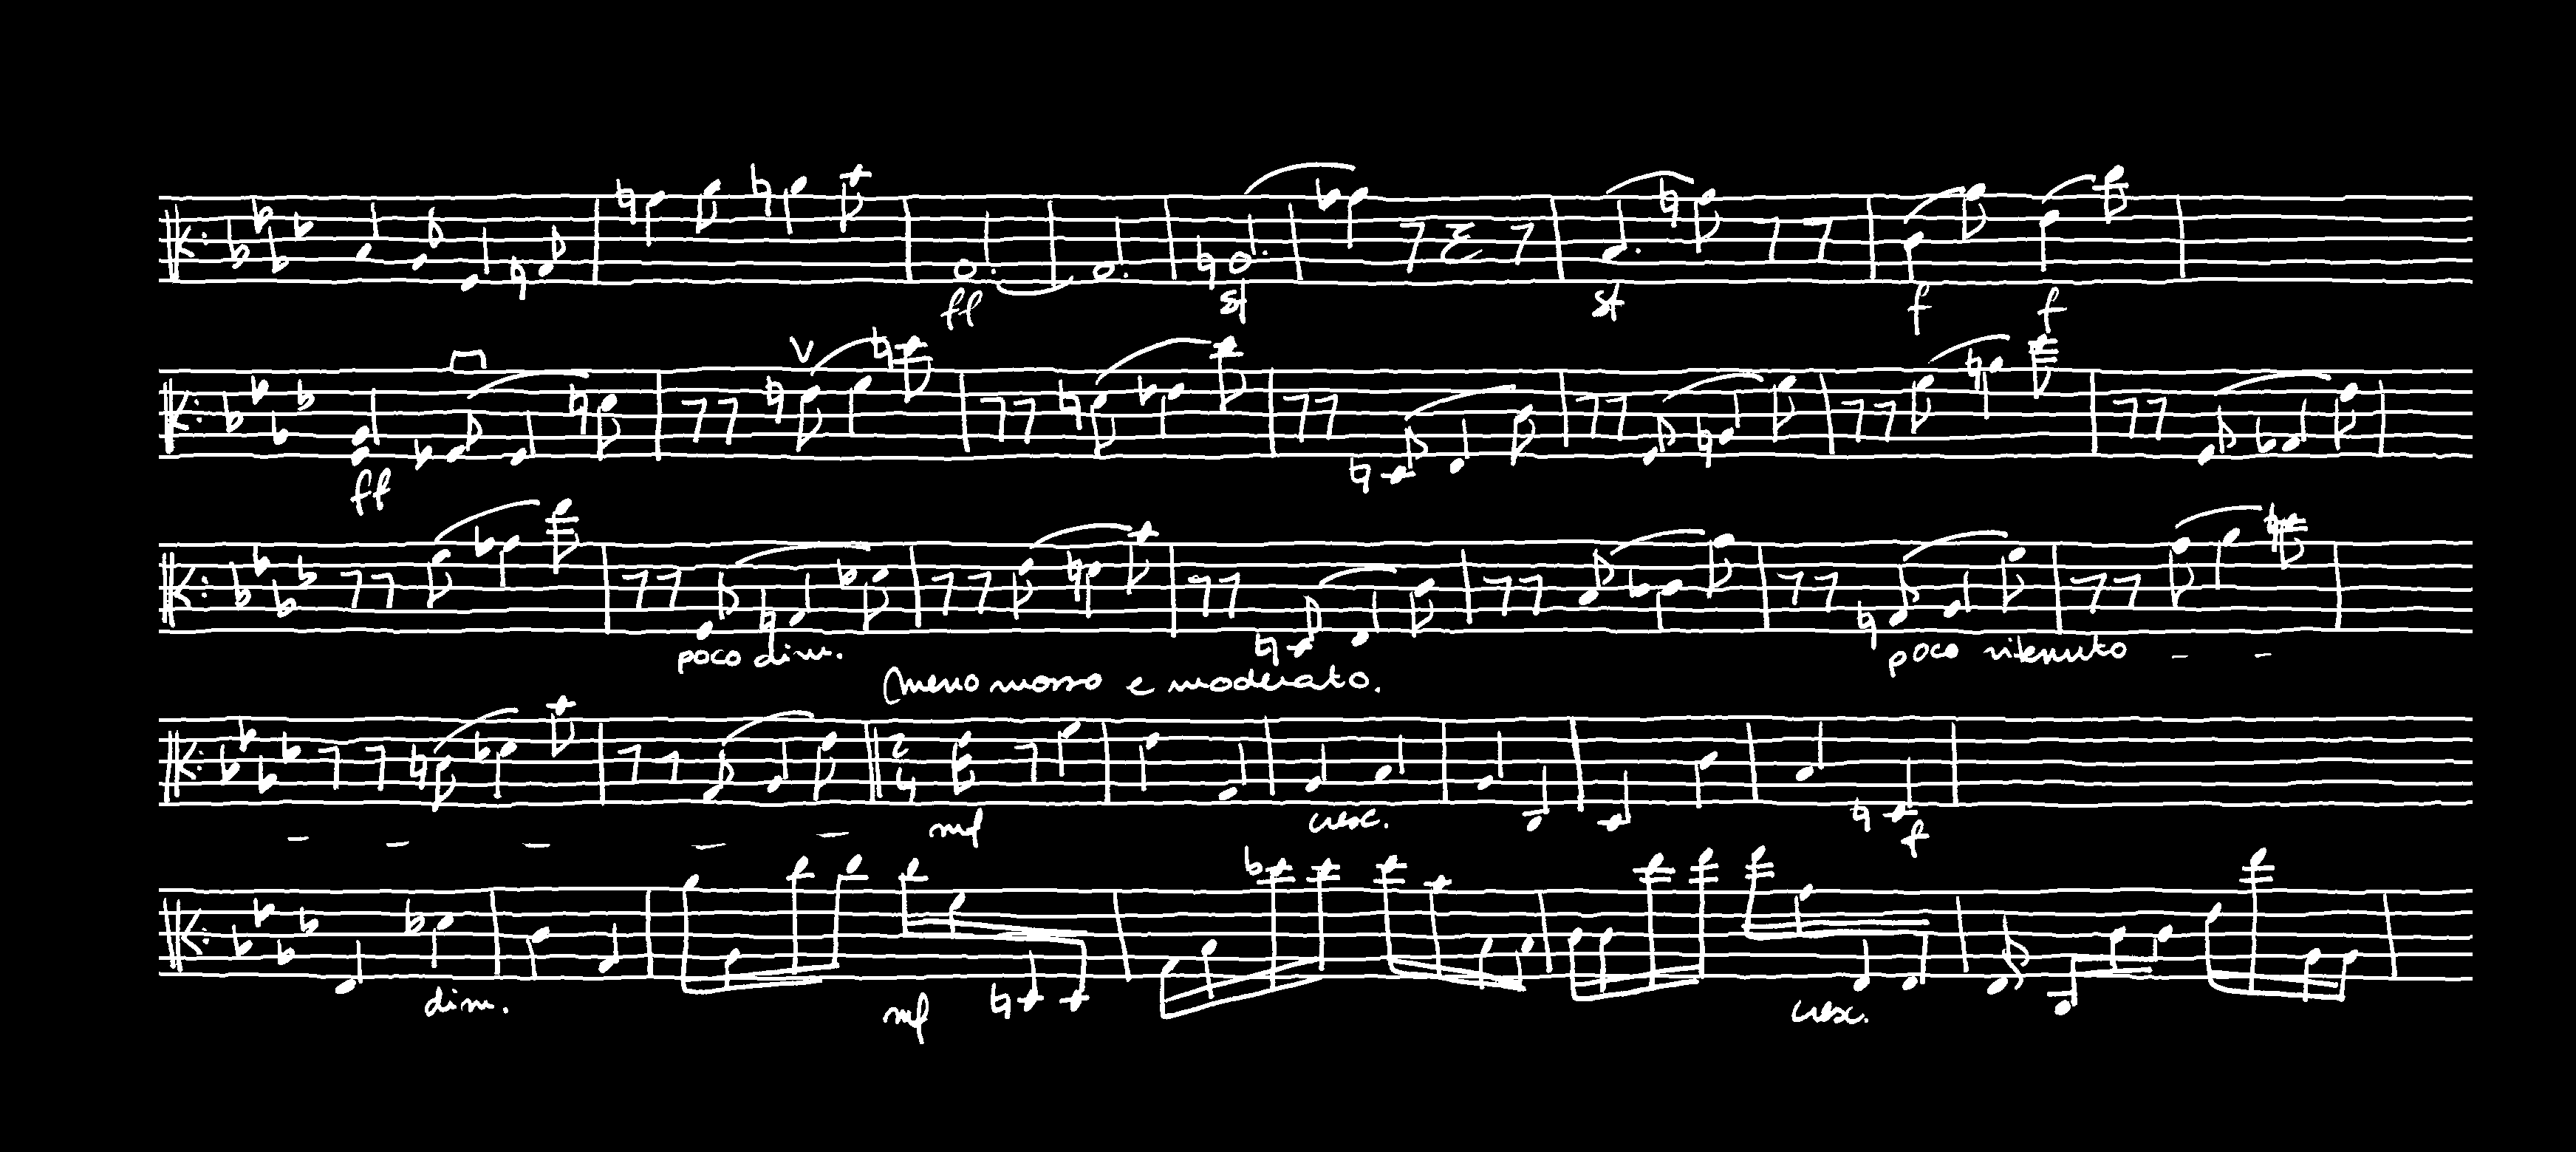 ff sf sf f f
V
ff
poco dim. poco ritenuto - -
meno mosso e moderato.
- - - - -
2
4
mf cresc. f
dim. mf cresc.